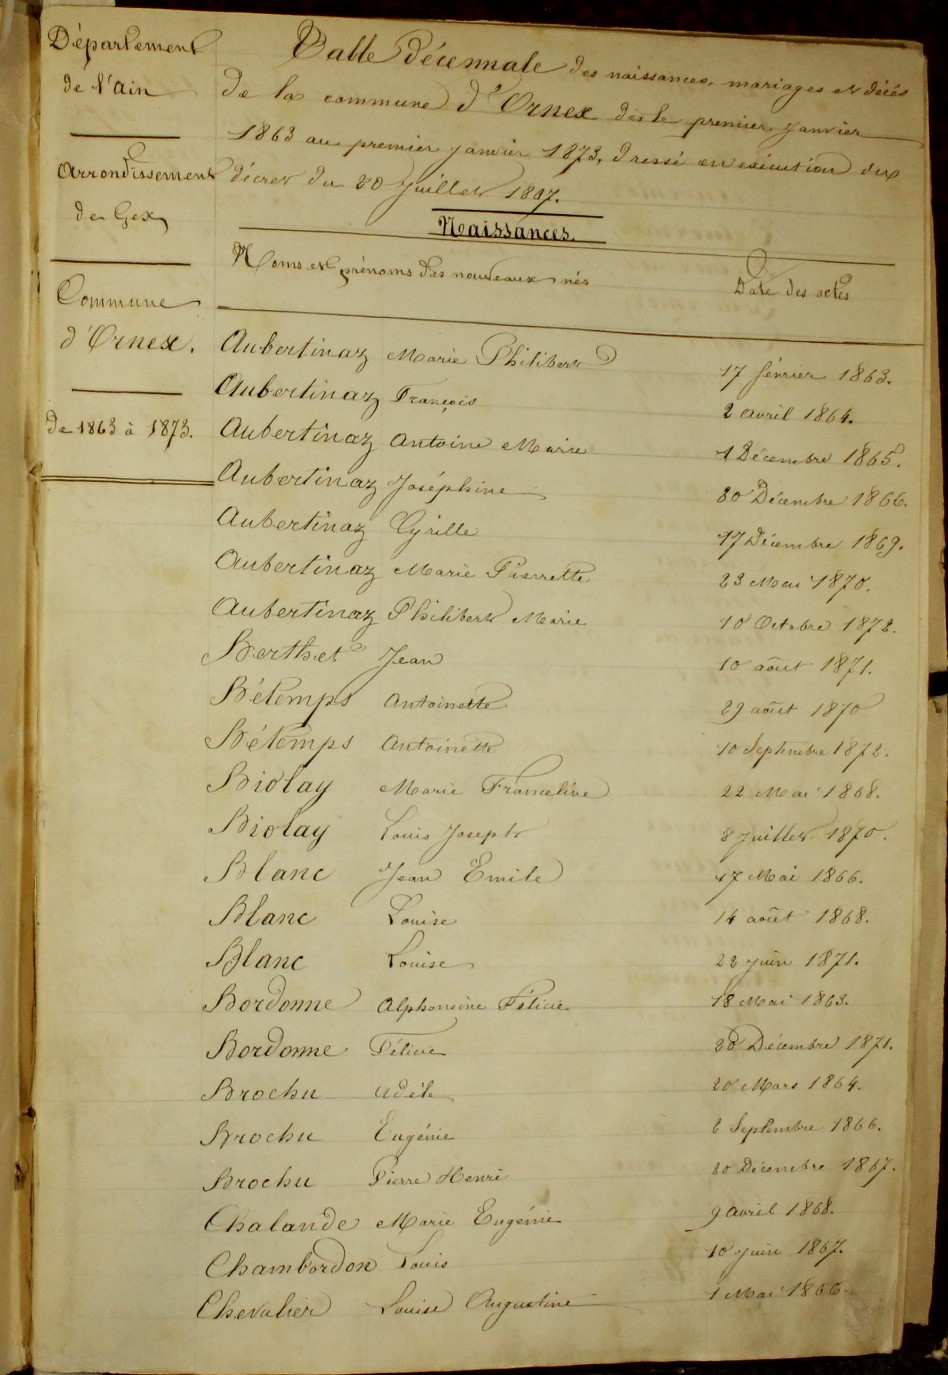 Département
de l'Ain
Arrondissement
de Gex
Commune
d'Ornex.
De 1863 à 1873.
Table Décennale des naissances, mariages et décès
de la commune d'Ornex dès le premier janvier
1863 au premier janvier 1873, dressé en exécution du
décret du 20 juillet 1807.
Naissances.
Noms et prénoms des nouveaux nés Date des actes
Aubertinaz Marie Philiberte 17 février 1863.
Aubertinaz François 2 avril 1864.
Aubertinaz Antoine Marie 1 Décembre 1865.
Aubertinaz Joséphine Décembre 1866.
Aubertinaz Cyrille 17 Décembre 1869.
Aubertinaz Marie Pierrette 23 Mai 1870.
Aubertinaz Philiberte Marie 10 Octobre 1872.
Berthet Jean 10 août 1871.
Bétemps Antoinette 29 août 1870
Bétemps Antoinette 10 Septembre 1872.
Biolay Marie Franceline 22 Mai 1868.
Biolay Louis Joseph 8 Juillet 1870.
Blanc Jean Emile 17 Mai 1866.
Blanc Louise 14 août 1868.
Blanc Louise 22 juin 1871.
Bordonne Alphonsine Félicie 18 Mai 1863.
Bordonne Félicie Décembre 1871.
Brochu Adèle 20 Mars 1864.
Brochu Eugénie Septembre 1866.
Brochu Pierre Henri Décembre 1867.
Chalande Marie Eugénie 9 avril 1868.
Chambordon Louis 10 juin 1867.
Chevalier Louise Augustine 1 Mai 1866.